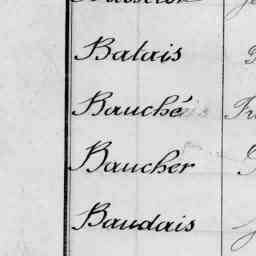 Batais
Bauché
Baucher
Baudais